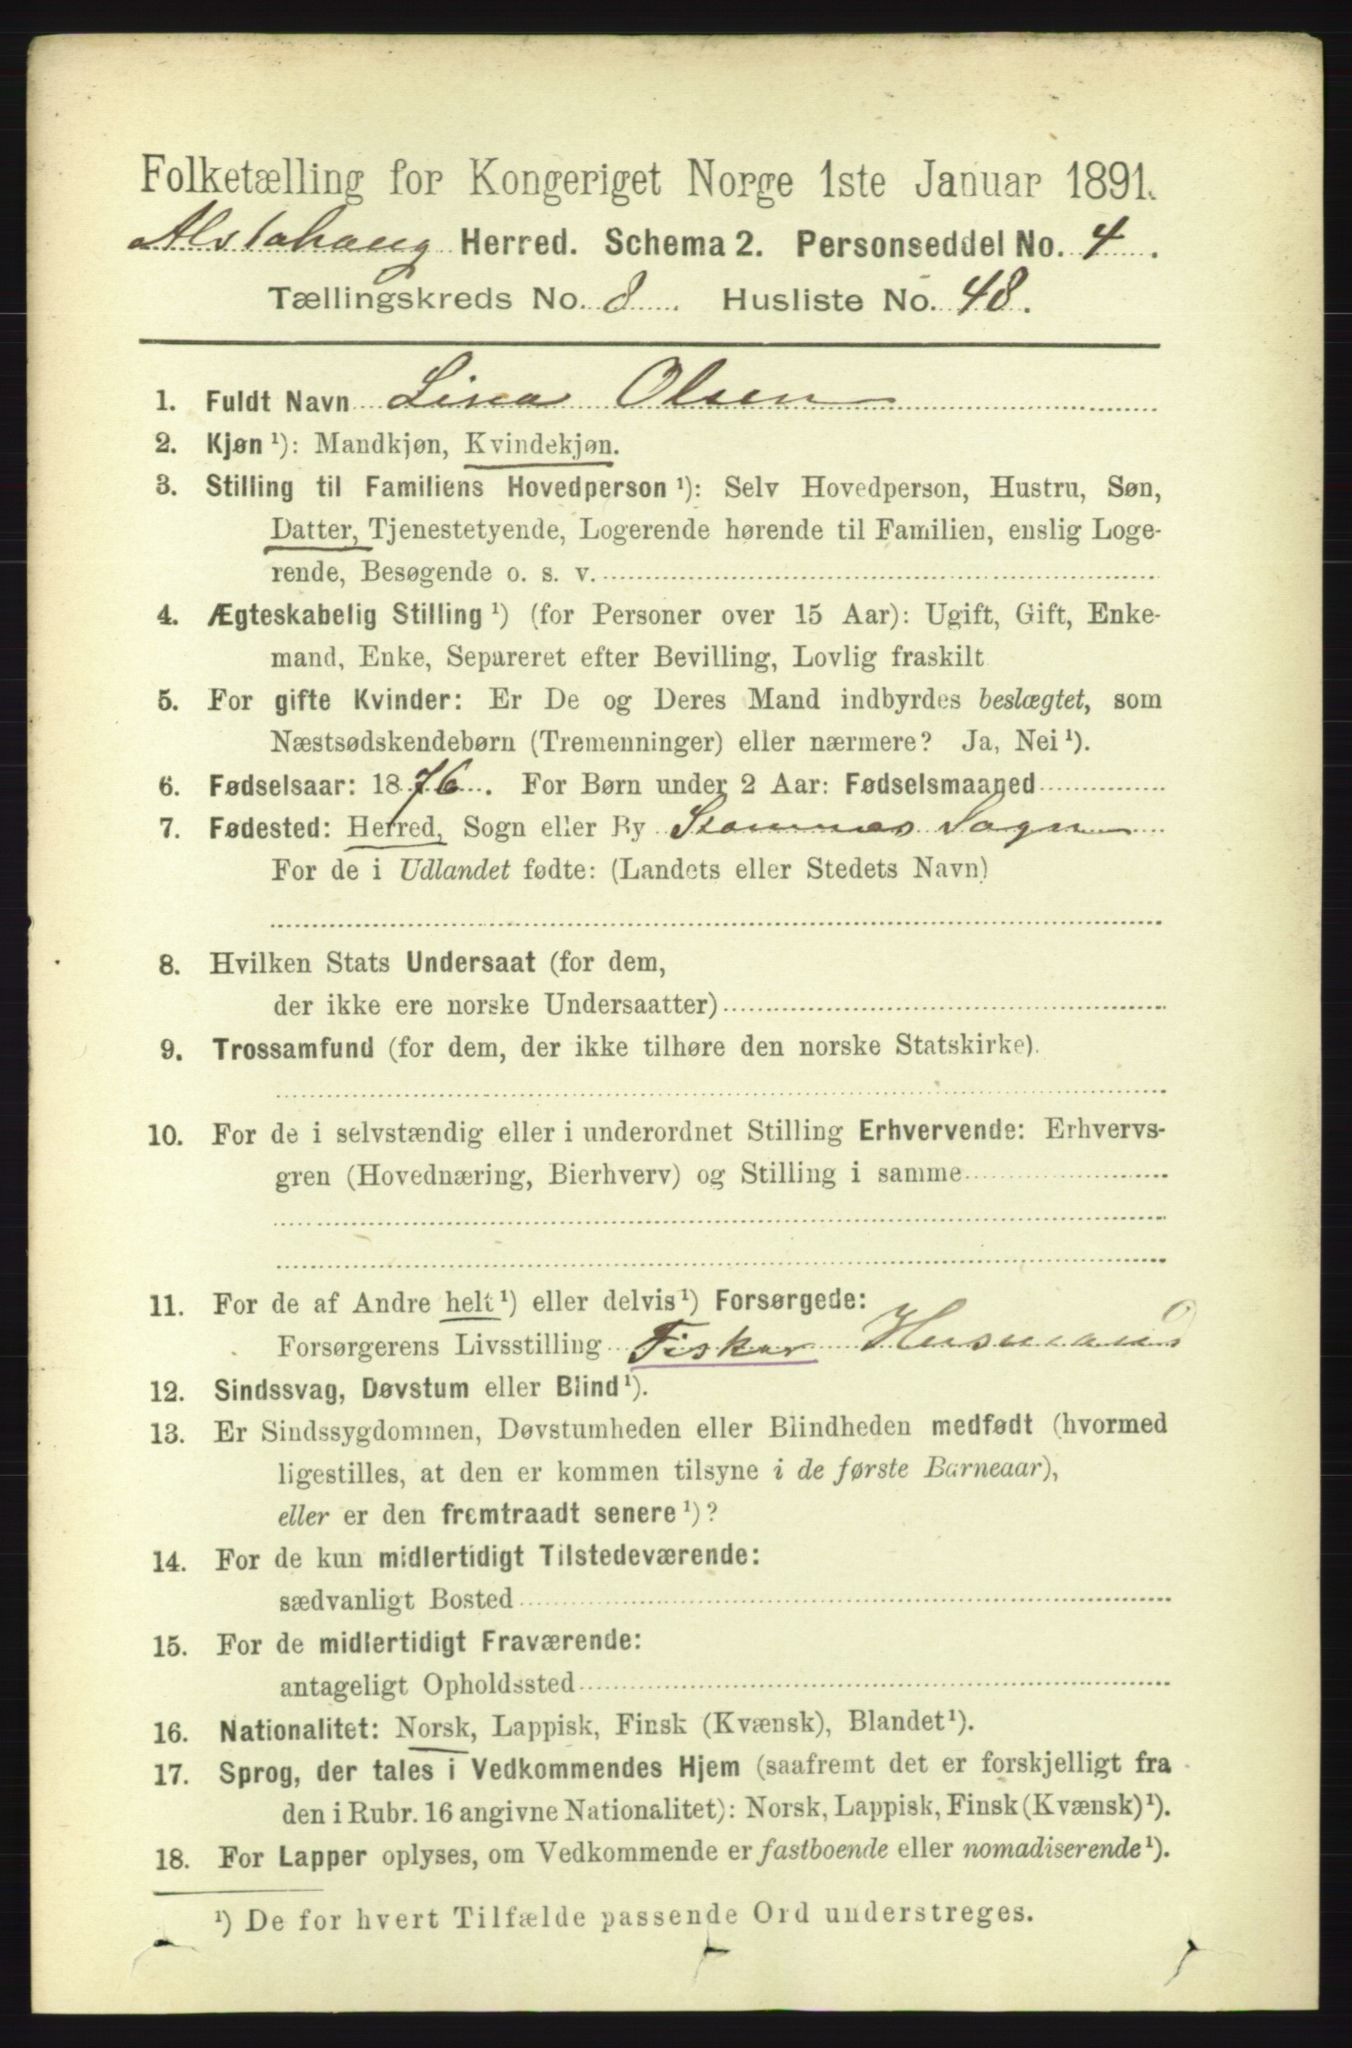 Folketælling for Kongeriget Norge 1ste Januar 1891.
Alstahaug Herred. Schema 2. Personseddel No. 4.
Tællingskreds No. 8. Husliste No. 48.
1. Fuldt Navn Lina Olsen
2. Kjøn ¹): Mandkjøn, Kvindekjøn.
3. Stilling til Familiens Hovedperson ¹): Selv Hovedperson, Hustru, Søn,
Datter, Tjenestetyende, Logerende hørende til Familien, enslig Loge-
rende, Besøgende o. s. v.
4. Ægteskabelig Stilling ¹) (for Personer over 15 Aar): Ugift, Gift, Enke-
mand, Enke, Separeret efter Bevilling, Lovlig fraskilt
5. For gifte Kvinder: Er De og Deres Mand indbyrdes beslægtet, som
Næstsødskendebørn (Tremenninger) eller nærmere? Ja, Nei ¹).
6. Fødselsaar: 1876. For Børn under 2 Aar: Fødselsmaaned
7. Fødested: Herred, Sogn eller By Stamnes Sogn
For de i Udlandet fødte: (Landets eller Stedets Navn)
8. Hvilken Stats Undersaat (for dem,
der ikke ere norske Undersaatter)
9. Trossamfund (for dem, der ikke tilhøre den norske Statskirke).
10. For de i selvstændig eller i underordnet Stilling Erhvervende: Erhvervs-
gren (Hovednæring, Bierhverv) og Stilling i samme
11. For de af Andre helt ¹) eller delvis ¹) Forsørgede:
Forsørgerens Livsstilling Fisker Husmand
12. Sindssvag, Døvstum eller Blind ¹).
13. Er Sindssygdommen, Døvstumheden eller Blindheden medfødt (hvormed
ligestilles, at den er kommen tilsyne i de første Barneaar),
eller er den fremtraadt senere ¹)?
14. For de kun midlertidigt Tilstedeværende:
sædvanligt Bosted
15. For de midlertidigt Fraværende:
antageligt Opholdssted
16. Nationalitet: Norsk, Lappisk, Finsk (Kvænsk), Blandet ¹).
17. Sprog, der tales i Vedkommendes Hjem (saafremt det er forskjelligt fra
den i Rubr. 16 angivne Nationalitet): Norsk, Lappisk, Finsk (Kvænsk) ¹).
18. For Lapper oplyses, om Vedkommende er fastboende eller nomadiserende ¹).
¹) De for hvert Tilfælde passende Ord understreges.